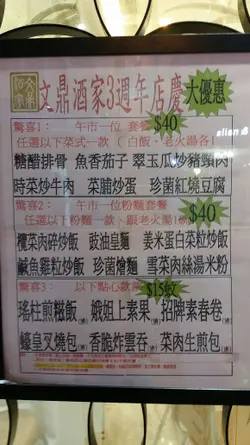 文鼎酒家3週年店慶
大優惠
驚喜1： 午市一位 套餐 $40
任選以下菜式一款（白飯、老火湯各1
糖醋排骨 魚香茄子 翠玉瓜炒豬頸肉
時菜炒牛肉 菜脯炒蛋 珍菌紅燒豆腐
驚喜2： 午市一位粉麵套餐 $40
任選以下粉麵一款、跟老火湯1
欖菜肉碎炒飯 豉油皇麵 姜米蛋白菜粒炒飯
鹹魚雞粒炒飯 珍菌燴麵 雪菜肉絲湯米粉
驚喜3 以下點心 $15蚊
瑤柱煎糍飯 娥姐上素果 招牌素春卷
蠔皇叉燒包 香脆炸雲吞 菜肉生煎包